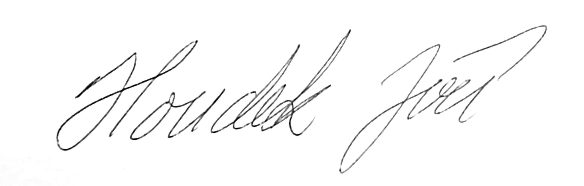 Houdek Jiří